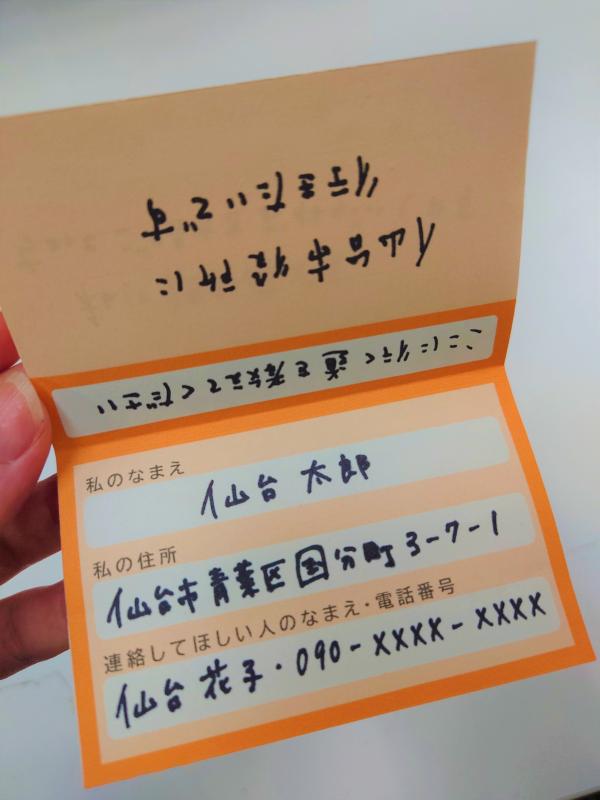 ここに行く道を教えてください
仙台市役所に
行きたいです
私のなまえ
仙台 太郎
私の住所
仙台市青葉区国分町3-7-1
連絡してほしい人のなまえ・電話番号
仙台 花子・090-XXXX-XXXX